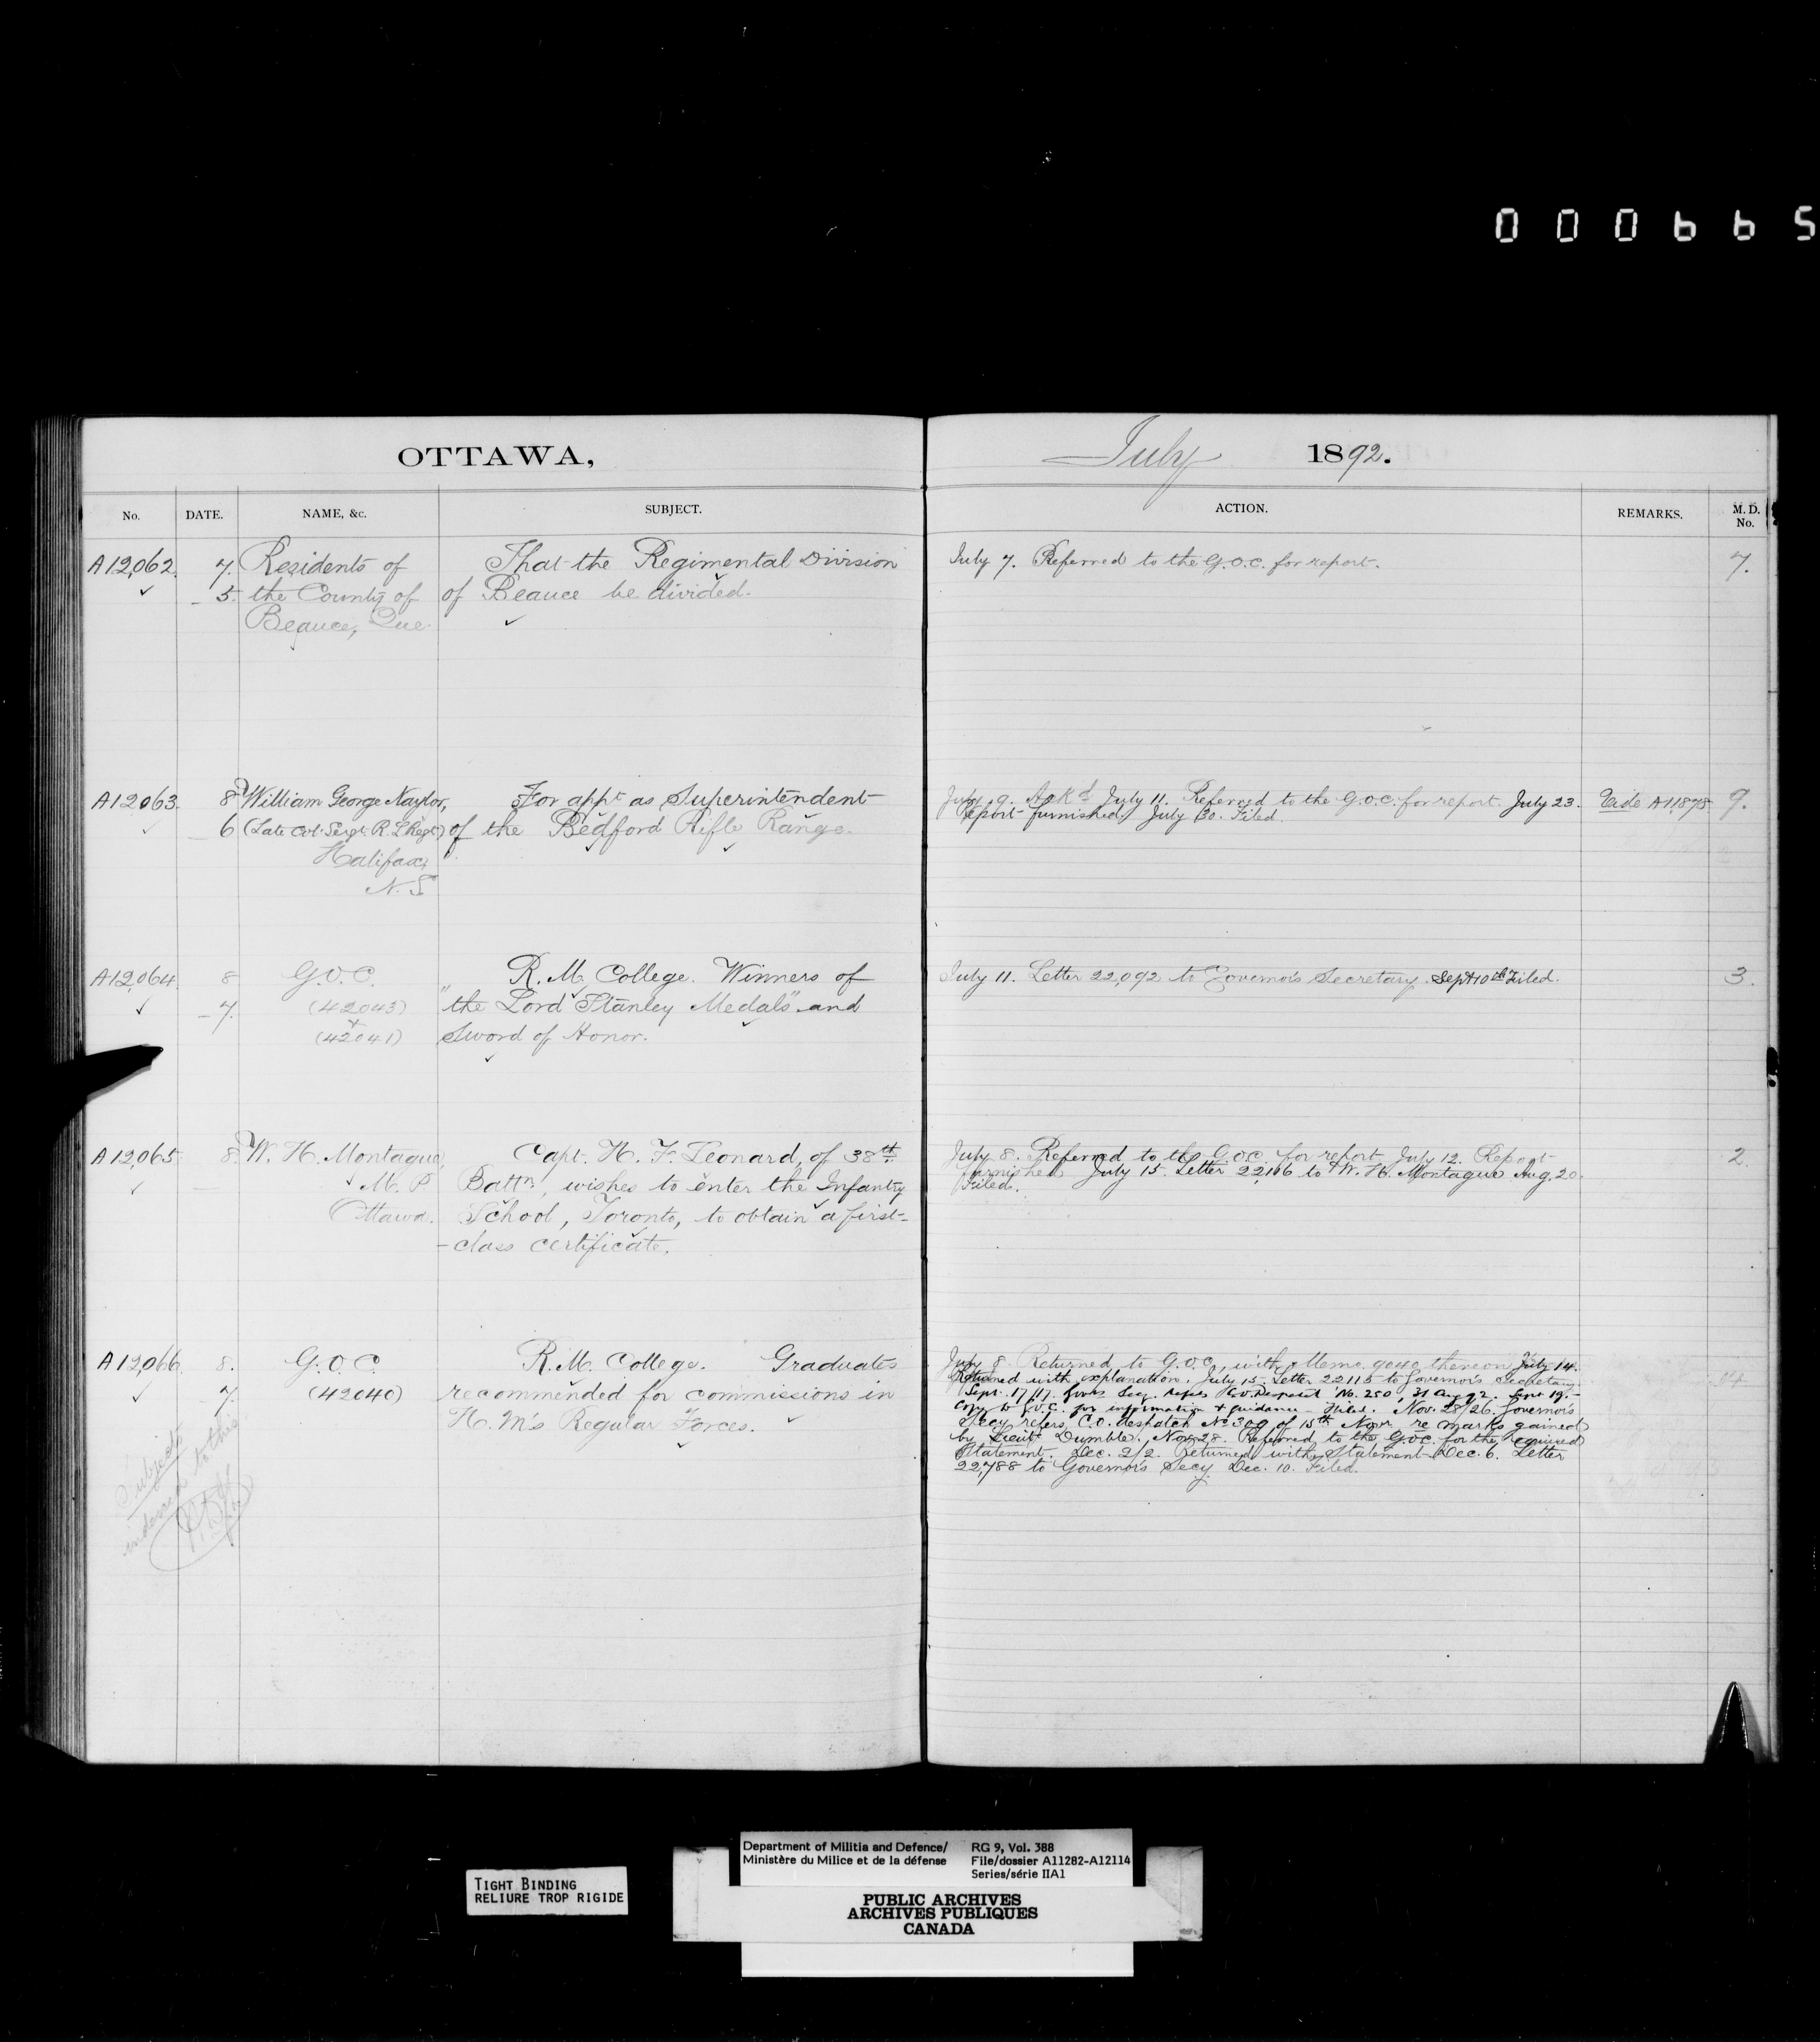 000665
OTTAWA,
July 1892.
No. DATE. NAME, &c. SUBJECT. ACTION. REMARKS. M. D. No.
A12,062. 7. Residents of That the Regimental Division July 7. Referred to the G.O.C. for report. 7.
5. the County of of Beauce be divided.
Beauce, Que.
A12063. 8 William George Naylor, For appt as Superintendent July 9. Ack'd July 11. Referred to the G.O.C. for report. July 23. Vide A11,878 9.
6 (Late Col-Sergt. R. L Regt.) of the Bedford Rifle Range. Report furnished. July 30. Filed.
Halifax,
N.S
A12,064. 8 G.O.C. R. M. College. Winners of July 11. Letter 22,092 to Governor's Secretary. Sept 10th Filed. 3.
7. (42043) "the Lord Stanley Medals" and
+
(42041) Sword of Honor.
A12,065 8. W. H. Montague, Capt. H. F. Leonard, of 38th July 8. Referred to the G.O.C. for report July 12. Report 2.
M. P. Battn, wishes to enter the Infantry furnished July 15. Letter 22,116 to W. H. Montague Aug. 20.
Filed.
Ottawa. School, Toronto, to obtain a first-
-class certificate.
A12,066 8. G.O.C. R. M. College. Graduates July 8 Returned to G.O.C. with Memo. 9040 thereon July 14.
7. (42040) recommended for commissions in Returned with explanation. July 15. Letter 22115 to Governor's Secretary.
H. M's Regular Forces. Sept. 17/17. Govrs Secy. refers Despatch No. 250, 31 Aug 92. Sept 19.-
Copy to G.O.C. for information & guidance - Filed. Nov. 28/26. Governor's
Secy. refers C.O. despatch No 309 of 15th Novr re marks gained
by Lieut Dumble. Nov. 28. Referred to the G.O.C. for the required
Statement. Dec. 2/2. Returned with Statement Dec. 6. Letter
22,788 to Governor's Secy. Dec. 10. Filed.
Subject
indexed to this
TIGHT BINDING
RELIURE TROP RIGIDE
Department of Militia and Defence/ RG 9, Vol. 388
Ministère du Milice et de la défense File/dossier A11282-A12114
Series/série IIA1
PUBLIC ARCHIVES
ARCHIVES PUBLIQUES
CANADA